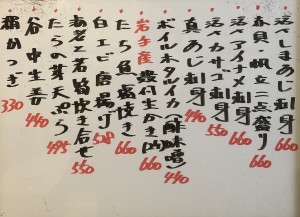 活〆しまあじ刺身
赤貝・帆立二点盛り 660
活〆アイナメ刺身 660
活〆カサゴ刺身 550
真あじ刺身 440
ボイルホタルイカ(酢味噌) 440
岩手産殻付生かき(1ヶ) 660
たち魚塩焼き 660
白エビ唐揚げ 528
海老と若筍炊き合せ 550
たらの芽天ぷら 495
谷中生姜 440
粉かつぎ 330